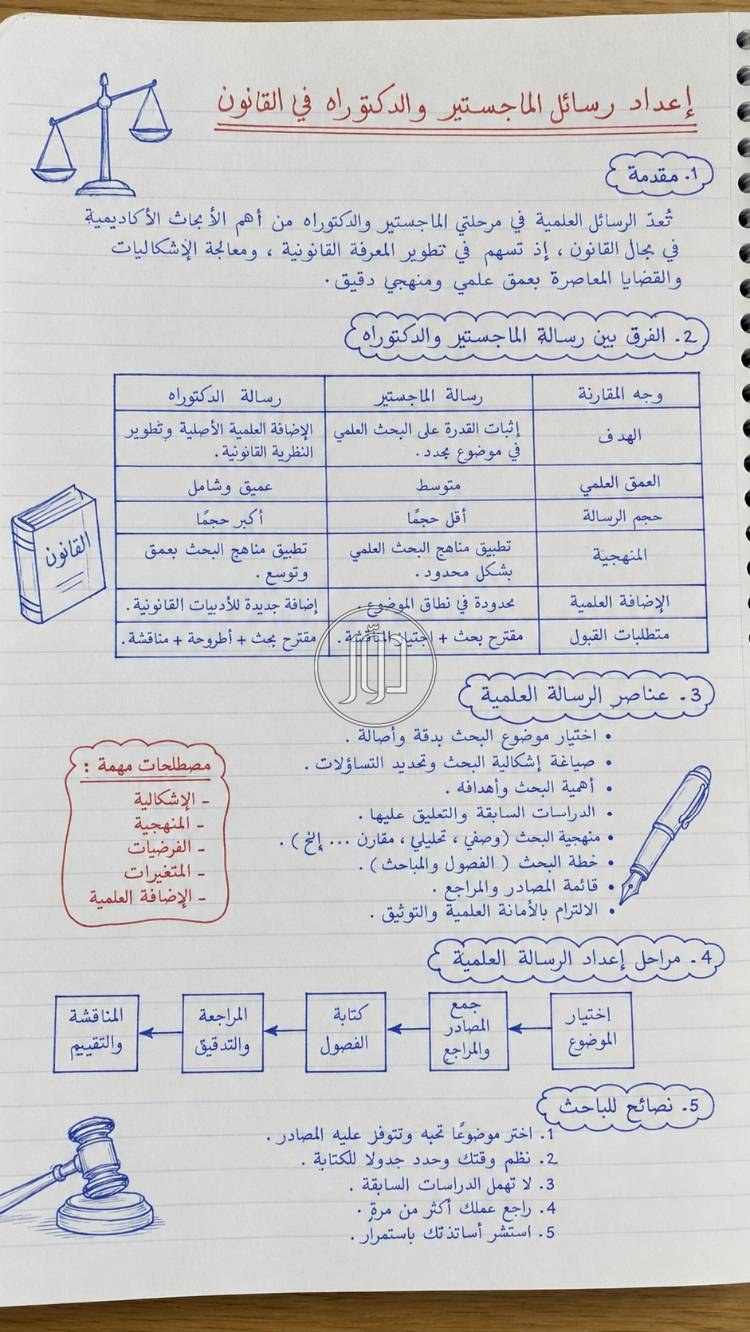 إعداد رسائل الماجستير والدكتوراه في القانون
1. مقدمة
تُعدّ الرسائل العلمية في مرحلتي الماجستير والدكتوراه من أهم الأبحاث الأكاديمية
في مجال القانون ، إذ تسهم في تطوير المعرفة القانونية ، ومعالجة الإشكاليات
والقضايا المعاصرة بعمق علمي ومنهجي دقيق .
2. الفرق بين رسالة الماجستير والدكتوراه
وجه المقارنة رسالة الماجستير رسالة الدكتوراه
الهدف
إثبات القدرة على البحث العلمي
في موضوع محدد .
الإضافة العلمية الأصلية وتطوير
النظرية القانونية .
العمق العلمي متوسط عميق وشامل
حجم الرسالة أقل حجمًا أكبر حجمًا
المنهجية
تطبيق مناهج البحث العلمي
بشكل محدود .
تطبيق مناهج البحث بعمق
وتوسع .
الإضافة العلمية محدودة في نطاق الموضوع . إضافة جديدة للأدبيات القانونية .
متطلبات القبول مقترح بحث + اجتياز المناقشة . مقترح بحث + أطروحة + مناقشة .
دوّر
القانون
3. عناصر الرسالة العلمية
• اختيار موضوع البحث بدقة وأصالة .
• صياغة إشكالية البحث وتحديد التساؤلات .
• أهمية البحث وأهدافه .
• الدراسات السابقة والتعليق عليها .
• منهجية البحث (وصفي ، تحليلي ، مقارن ... إلخ ) .
• خطة البحث ( الفصول والمباحث ) .
• قائمة المصادر والمراجع .
• الالتزام بالأمانة العلمية والتوثيق .
مصطلحات مهمة :
- الإشكالية
- المنهجية
- الفرضيات
- المتغيرات
- الإضافة العلمية
4. مراحل إعداد الرسالة العلمية
إختيار
الموضوع
جمع
المصادر
والمراجع
كتابة
الفصول
المراجعة
والتدقيق
المناقشة
والتقييم
5. نصائح للباحث
1. اختر موضوعًا تحبه وتتوفز عليه المصادر .
2. نظم وقتك وحدد جدولا للكتابة .
3. لا تهمل الدراسات السابقة .
4. راجع عملك أكثر من مرة .
5. استشر أساتذتك باستمرار .